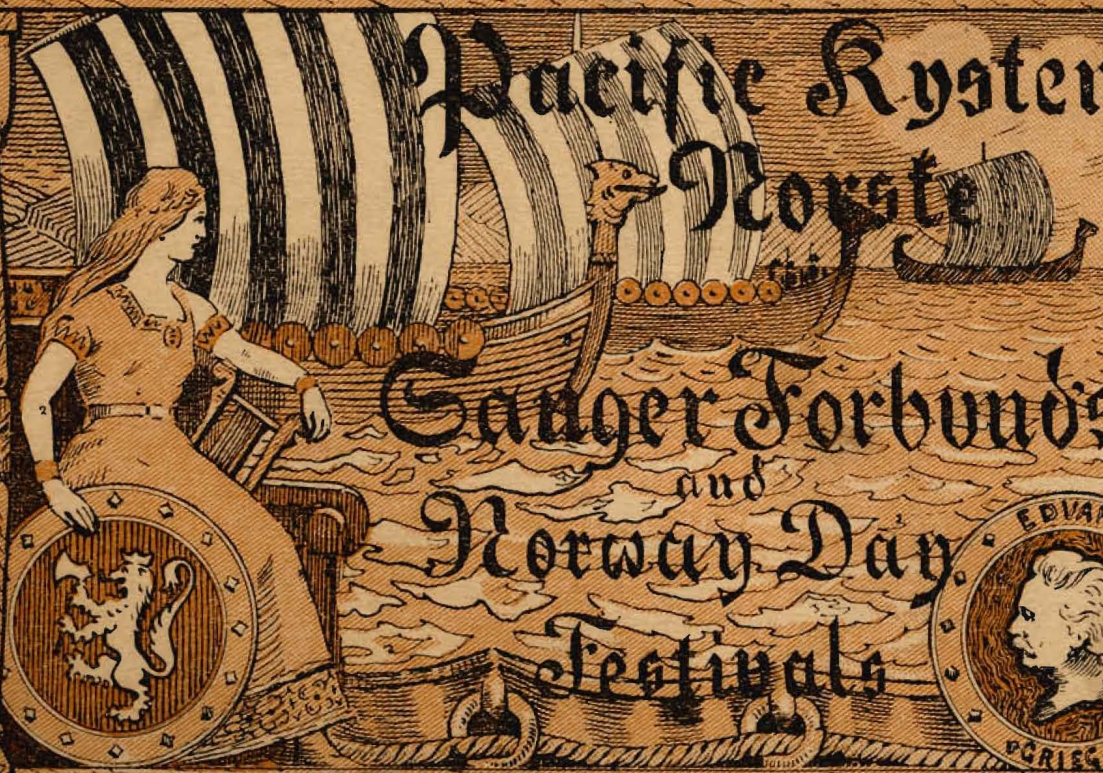 Pacific Kysten
Norske
Sanger Forbunds
and
Norway Day
Festivals
EDVA
GRIEG